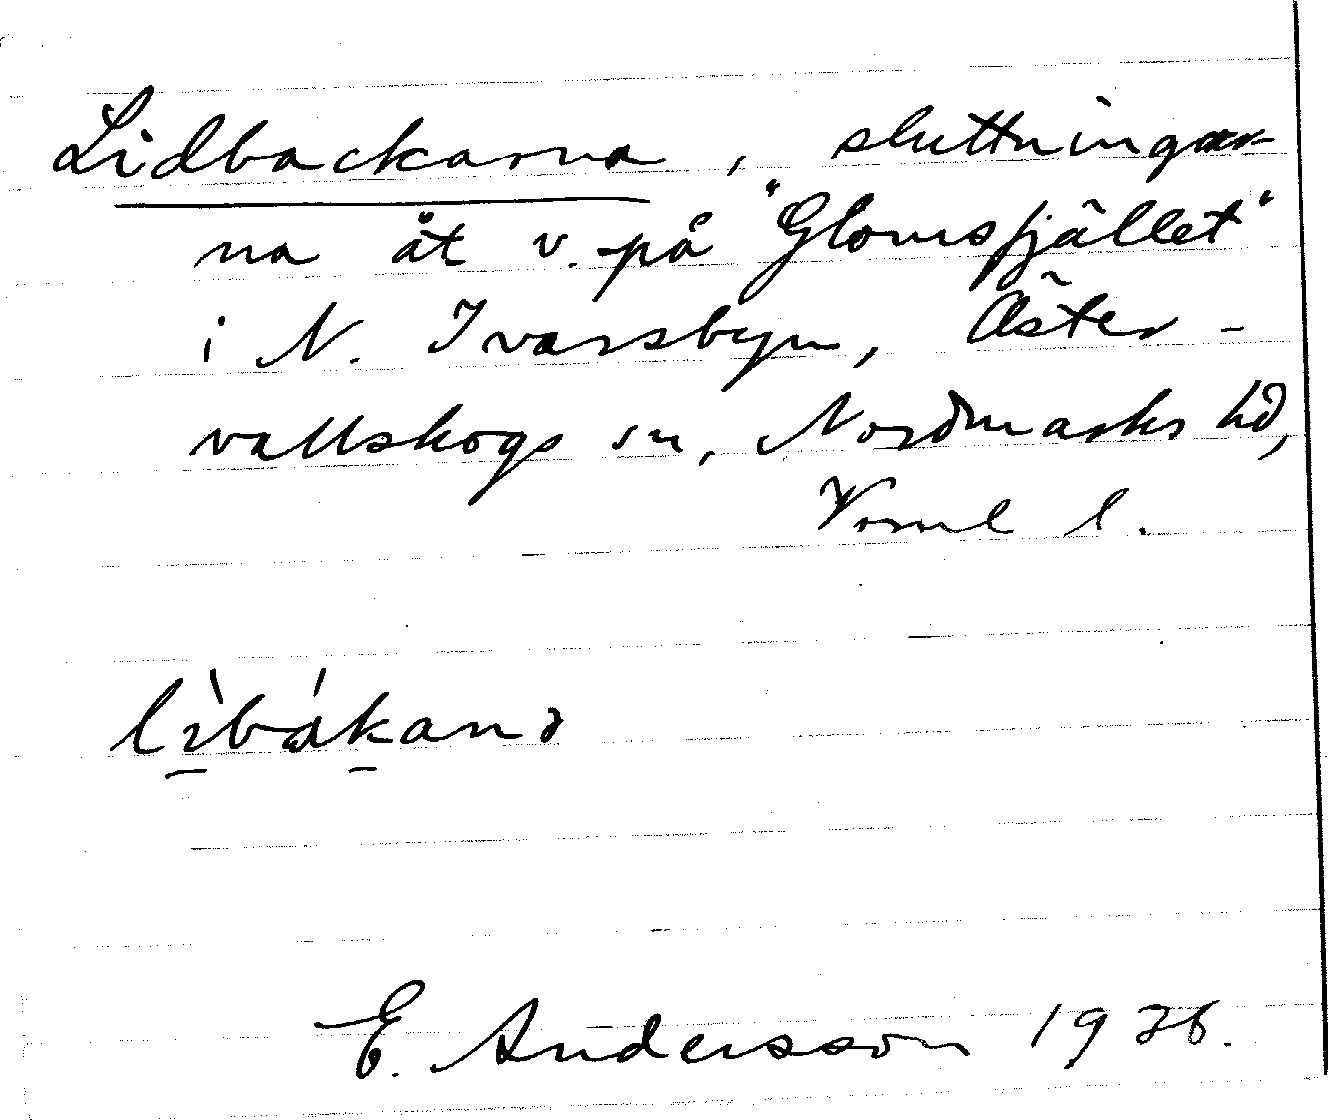 Lidbackarna, sluttningar-
na åt v. på "Glomsfjället"
i N. Ivarsbyn, Öster-
vallskogs sn, Nordmarks hd,
Värml l.
lìbákanə
E. Andersson 1926.